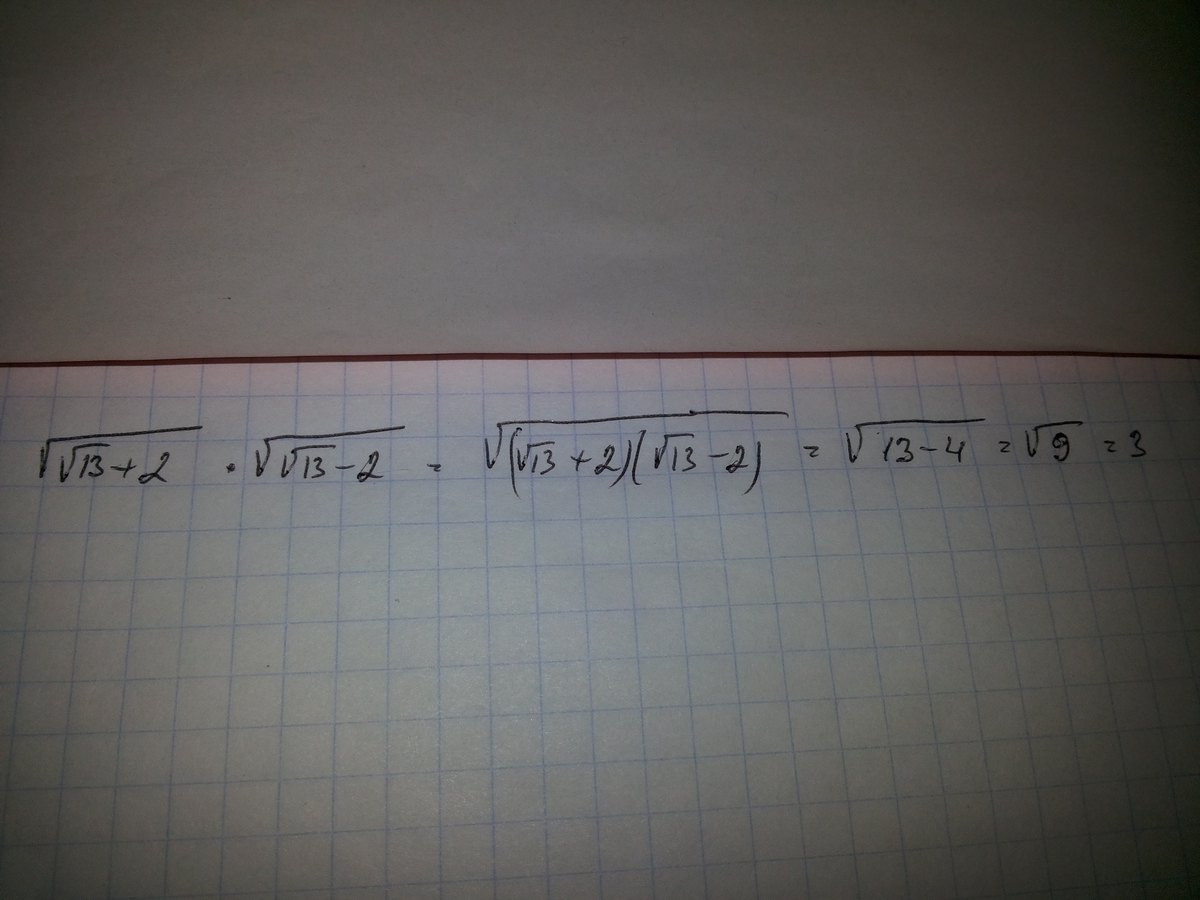 √(√13+2) · √(√13-2) = √((√13+2)(√13-2)) = √(13-4) = √9 = 3